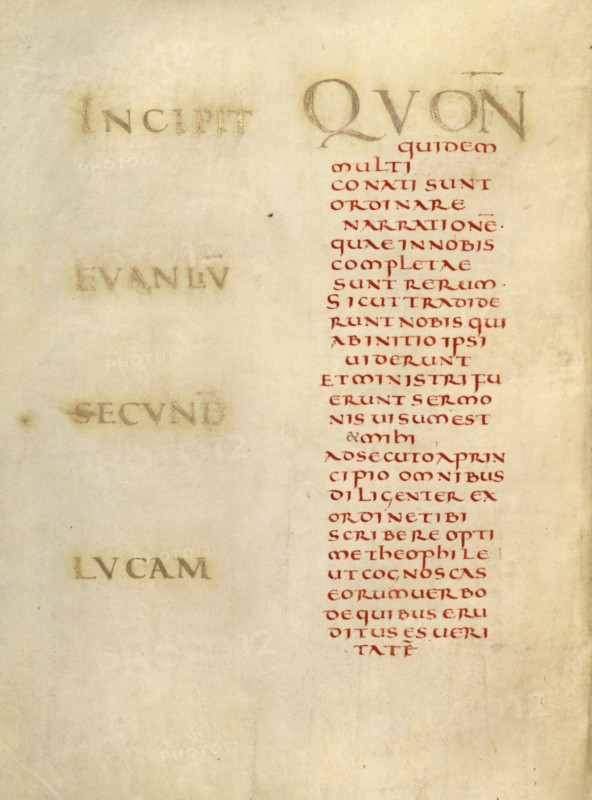 INCIPIT
EVANLIV̄
SECVND̄
LVCAM
QVON̄
QUIDEM
MULTI
CONATI SUNT
ORDINARE
NARRATIONĒ·
QUAE IN NOBIS
COMPLETAE
SUNT RERUM·
SICUT TRADIDE
RUNT NOBIS QUI
AB INITIO IPSI
UIDERUNT
ET MINISTRI FU
ERUNT SERMO
NIS UISUM EST
& MIHI
ADSECUTO A PRIN
CIPIO OMNIBUS
DILIGENTER EX
ORDINE TIBI
SCRIBERE OPTI
ME THEOPHILE
UT COGNOSCAS
EORUM UERBO
DE QUIBUS ERU
DITUS ES UERI
TATĒ
PHOTO12